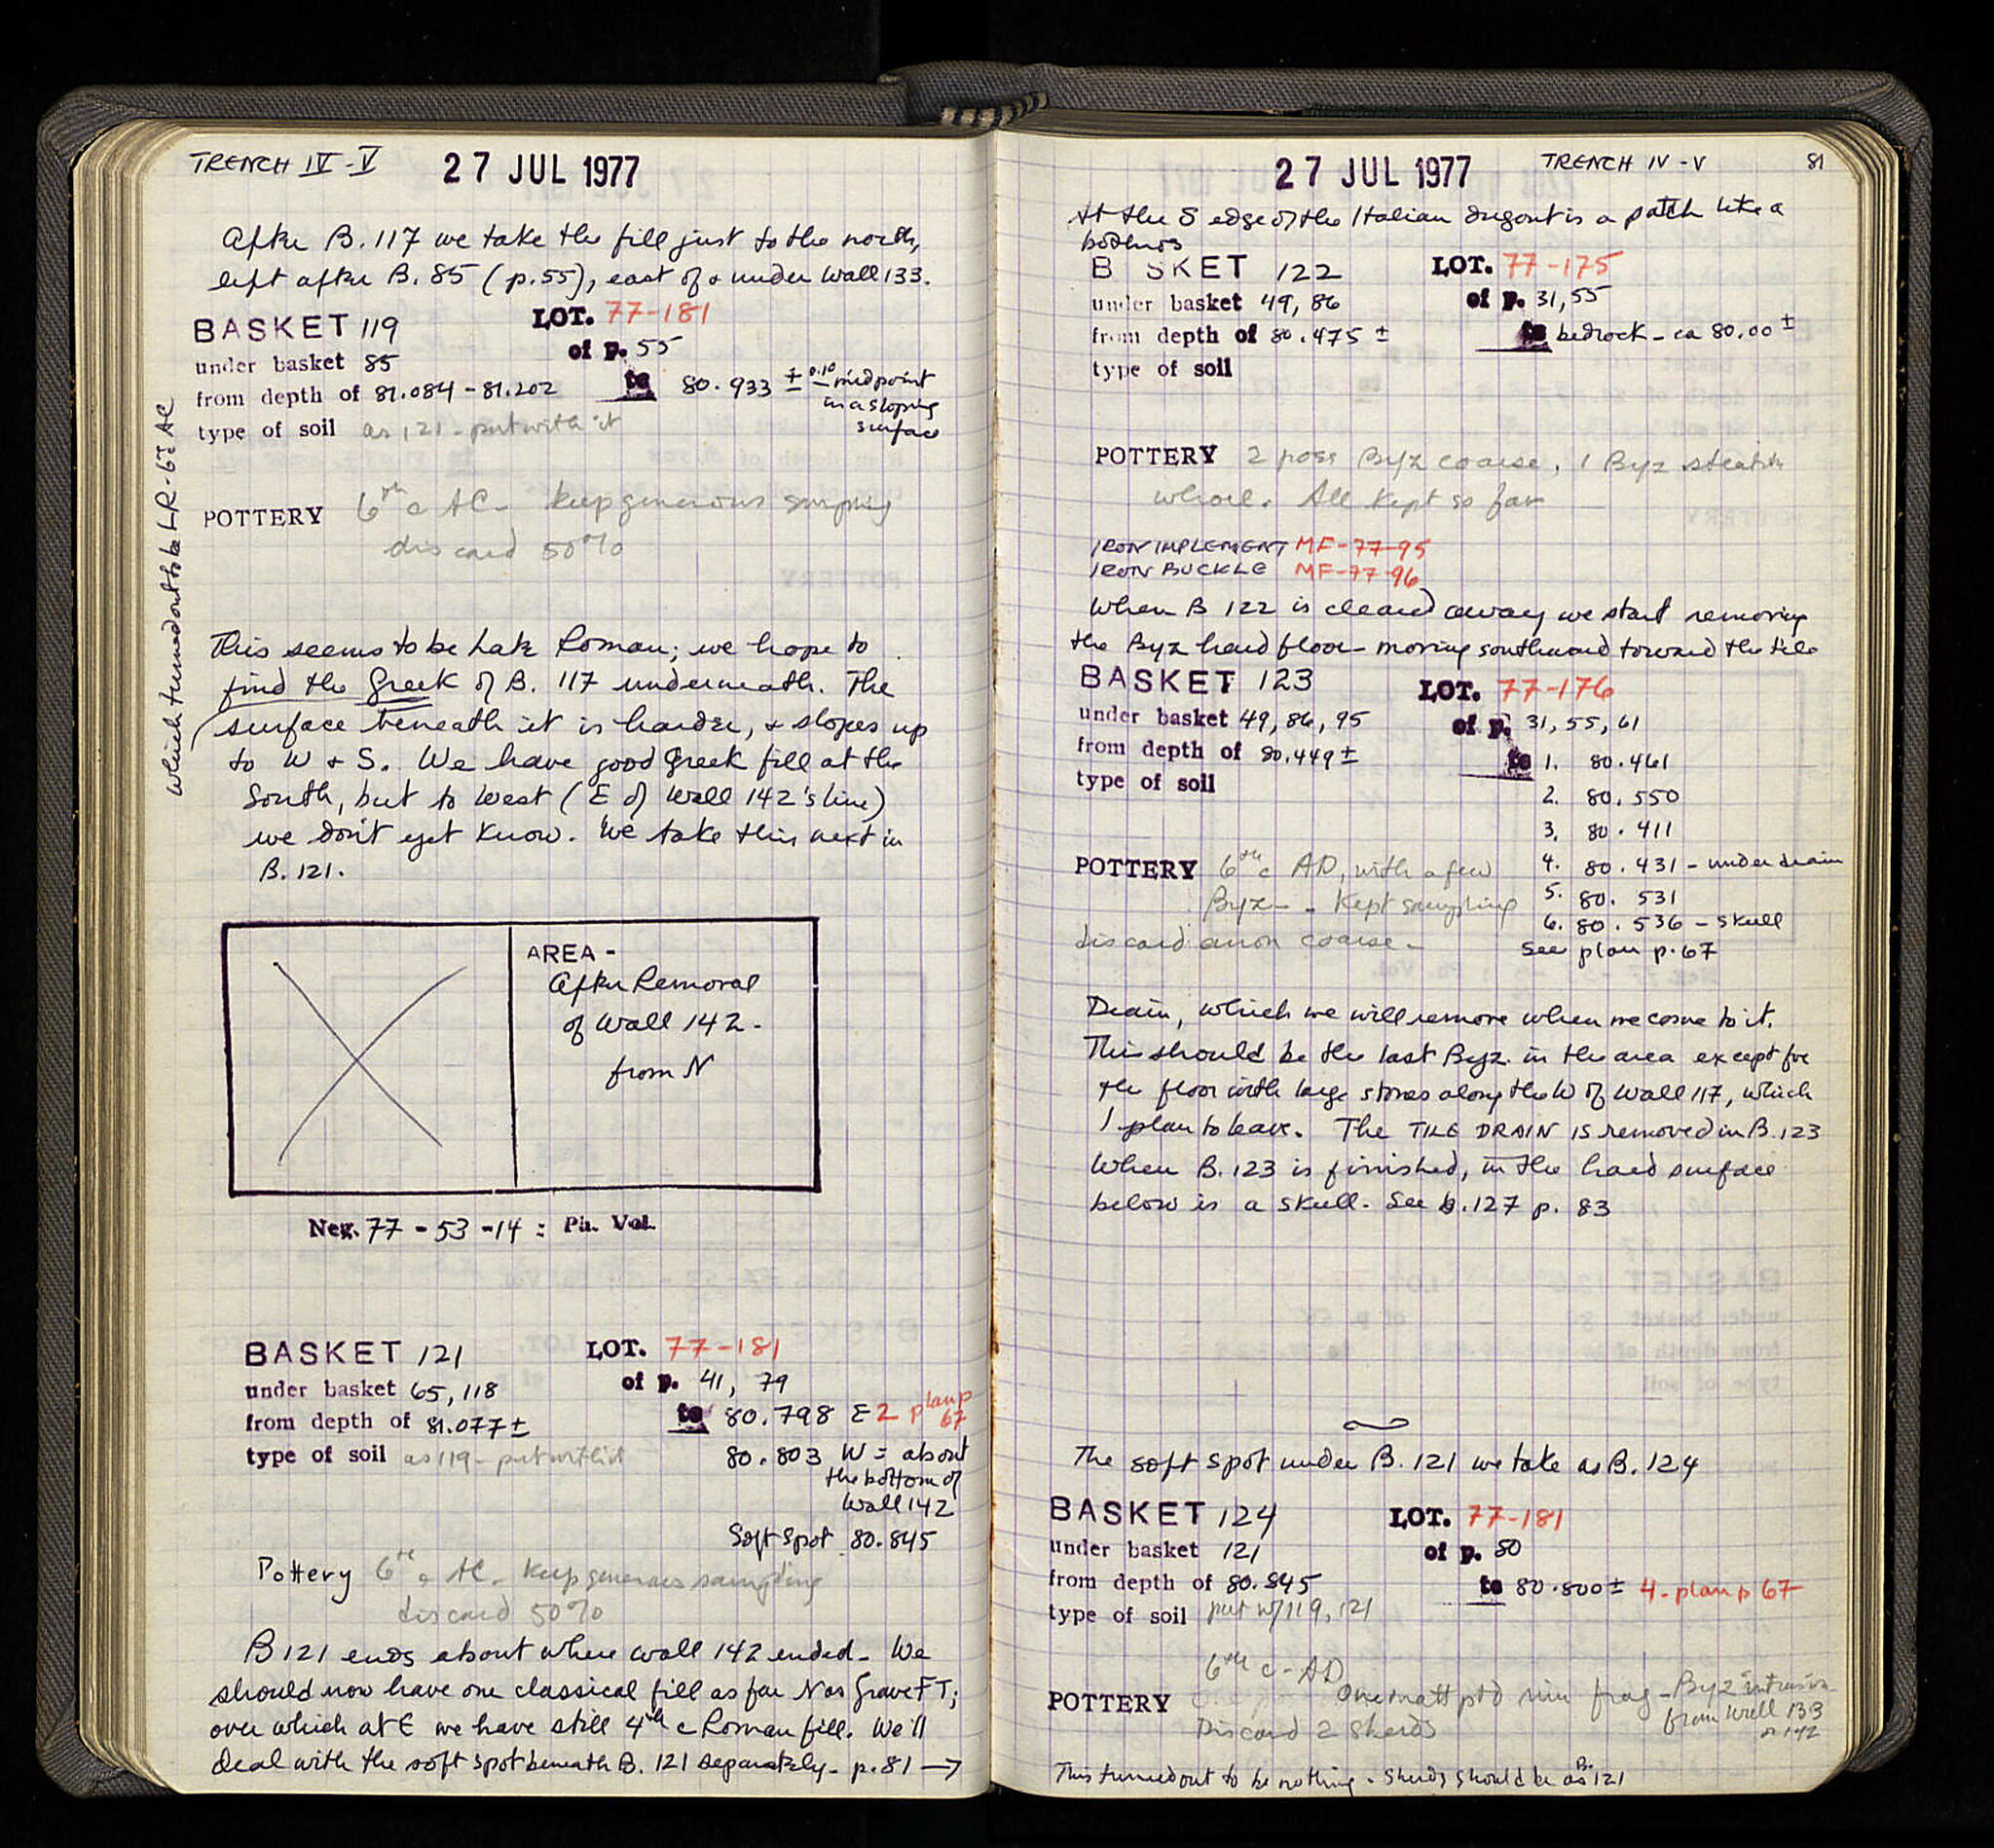 TRENCH IV-V 27 JUL 1977
After B. 117 we take the fill just to the north,
left after B. 85 (p.55), east of & under Wall 133.
BASKET 119 LOT. 77-181
under basket 85 of p. 55
from depth of 81.084 - 81.202 to 80.933 ± 0.10 - midpoint
in a sloping
surface
type of soil as 121 - put with it
POTTERY 6th c AC - keep generous sampling
discard 50%
which turned out to be LR - 6th AC
This seems to be Late Roman; we hope to
find the Greek of B. 117 underneath. The
surface beneath it is harder, & slopes up
to W & S. We have good Greek fill at the
South, but to West (E of Wall 142's line)
we don't yet know. We take this next in
B. 121.
AREA -
After Removal
of Wall 142 -
from N
Neg. 77 - 53 - 14 : Ph. Vol.
BASKET 121 LOT. 77-181
under basket 65, 118 of p. 41, 79
from depth of 81.077 ± to 80.798 E 2 plan p
67
type of soil as 119 - put with it 80.803 W = about
the bottom of
Wall 142
Soft spot 80.845
Pottery 6th c AC - keep generous sampling
discard 50%
B 121 ends about where wall 142 ended - We
should now have one classical fill as far N as Grave FT;
over which at E we have still 4th c Roman fill. We'll
deal with the soft spot beneath B. 121 separately - p. 81 →
27 JUL 1977 TRENCH IV - V 81
At the S edge of the Italian dugout is a patch like a
bothros
B SKET 122 LOT. 77-175
under basket 49, 86 of p. 31, 55
from depth of 80.475 ± to bedrock - ca 80.00 ±
type of soil
POTTERY 2 poss Byz coarse, 1 Byz steatite
whorl. All kept so far
IRON IMPLEMENT MF-77-95
IRON BUCKLE MF-77-96
When B 122 is cleared away we start removing
the Byz hard floor - moving southward toward the tile
BASKET 123 LOT. 77-176
under basket 49, 86, 95 of p. 31, 55, 61
from depth of 80.449 ± to 1. 80.461
type of soil
2. 80.550
3. 80.411
4. 80.431 - under drain
5. 80.531
6. 80.536 - skull
see plan p. 67
POTTERY 6th c AD, with a few
Byz - Kept sampling
discard coarse -
Drain, which we will remove when we come to it.
This should be the last Byz. in the area except for
the floor with large stones along the W of Wall 117, which
I plan to leave. The TILE DRAIN IS removed in B. 123
When B. 123 is finished, in the hard surface
below is a skull. See b. 127 p. 83
The soft spot under B. 121 we take as B. 124
BASKET 124 LOT. 77-181
under basket 121 of p. 80
from depth of 80.845 to 80.800 ± 4 - plan p 67
type of soil put w/ 119, 121
POTTERY 6th c - AD
One matt ptd rim frag - Byz intrusion
from Wall 133
or 142
Discard 2 sherds
This turned out to be nothing. Sherds should be as B. 121